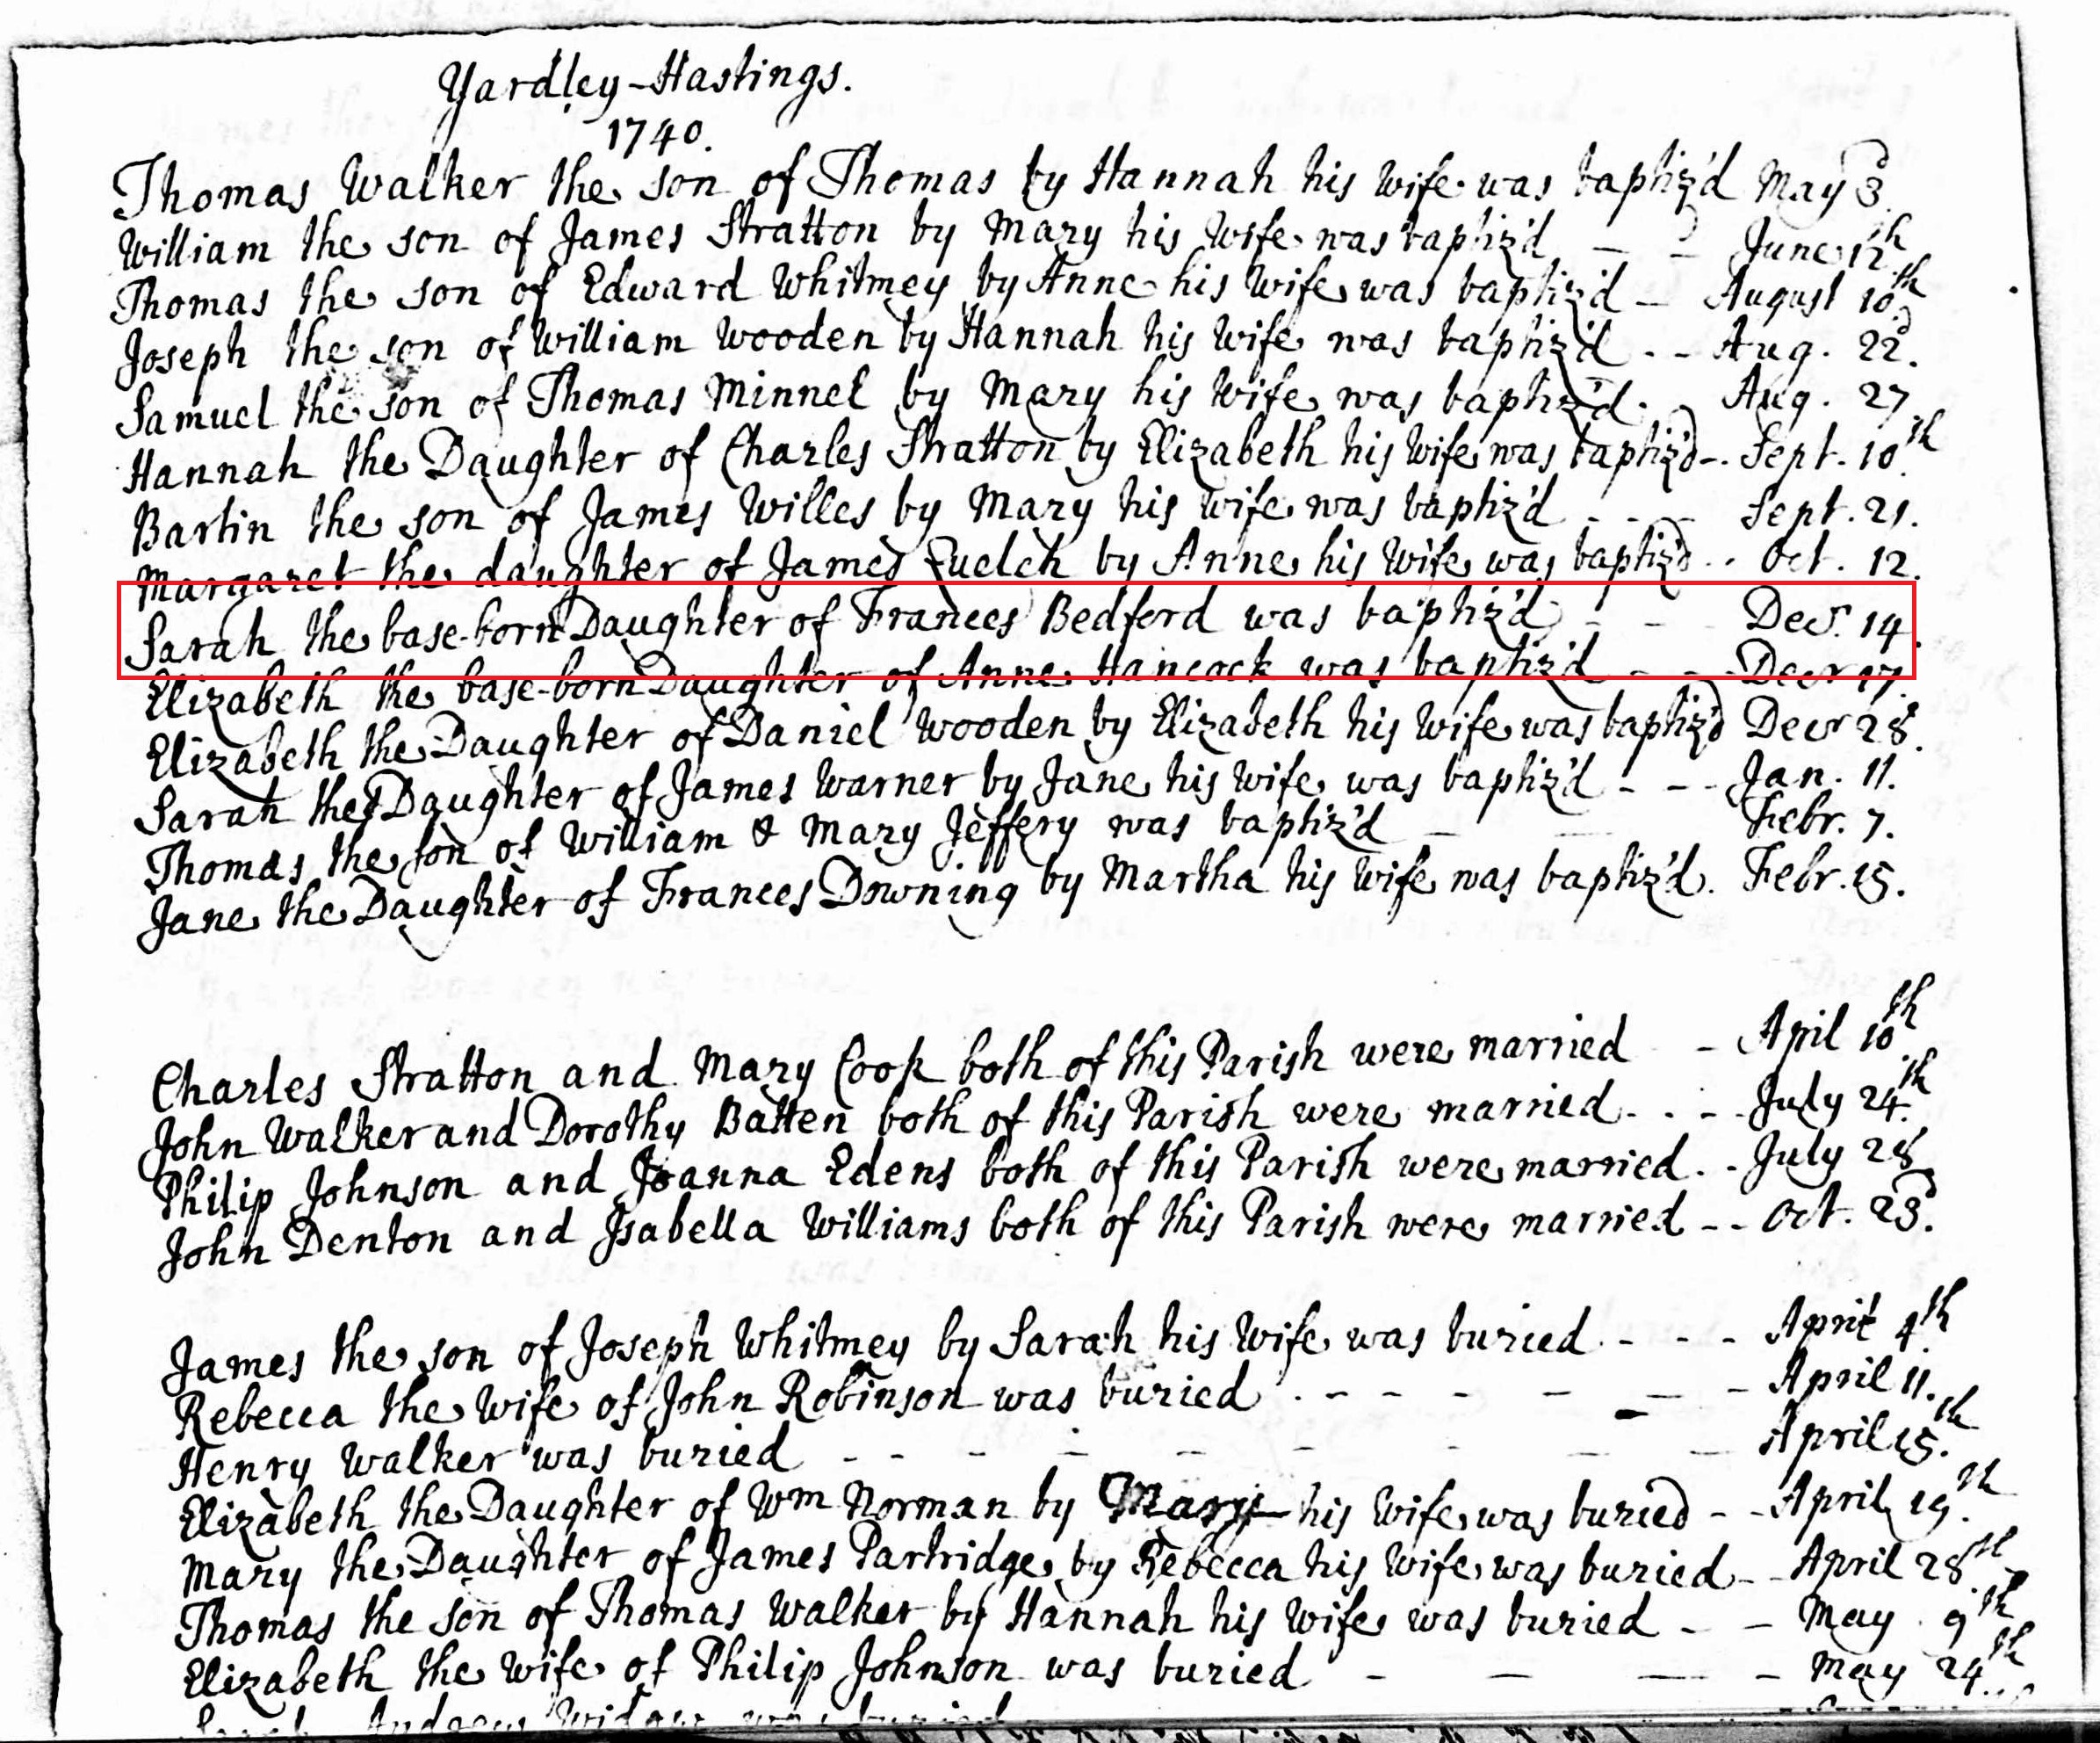 Yardley-Hastings.
1740.
Thomas Walker the son of Thomas by Hannah his wife was baptiz'd May 3
William the son of James Stratton by Mary his Wife was baptiz'd - - June 12th
Thomas the son of Edward Whitmey by Anne his Wife was baptiz'd - August 10th
Joseph the son of William Wooden by Hannah his wife was baptiz'd . - Aug. 22.
Samuel the son of Thomas Minnel by Mary his Wife was baptiz'd. . Aug. 27
Hannah the Daughter of Charles Stratton by Elizabeth his Wife was baptiz'd -. Sept. 10th
Bartin the son of James Willes by Mary his wife was baptiz'd - - - Sept. 21.
Margaret the daughter of James by Anne his Wife was baptiz'd . . Oct. 12.
Sarah the base-born Daughter of Frances Bedford was baptiz'd - - - Decr. 14.
Elizabeth the base-born Daughter of Anne Hancock was baptiz'd - - - Decr 17.
Elizabeth the Daughter of Daniel Wooden by Elizabeth his Wife was baptiz'd Decr 28.
Sarah the Daughter of James Warner by Jane his Wife was baptiz'd - - - Jan. 11.
Thomas the son of William & Mary Jeffery was baptiz'd - - Febr. 7.
Jane the Daughter of Frances Downing by Martha his Wife was baptiz'd. Febr. 15.
Charles Stratton and Mary Cook both of this Parish were married - April 10th
John Walker and Dorothy Batten both of this Parish were married - . - July 24th
Philip Johnson and Joanna Edens both of this Parish were married . . July 28
John Denton and Isabella Williams both of this Parish were married - - Oct. 23.
James the son of Joseph Whitmey by Sarah his Wife was buried - - - April 4th
Rebecca the Wife of John Robinson was buried . - - - - - - April 11.
Henry Walker was buried - - - - - - - - April 15th
Elizabeth the Daughter of Wm Norman by Mary his Wife was buried - - April 19th
Mary the Daughter of James Partridge by Rebecca his Wife was buried - - April 28th
Thomas the son of Thomas Walker by Hannah his Wife was buried - - May 9th
Elizabeth the Wife of Philip Johnson was buried - - - - May 24th
Andrews Widow was buried